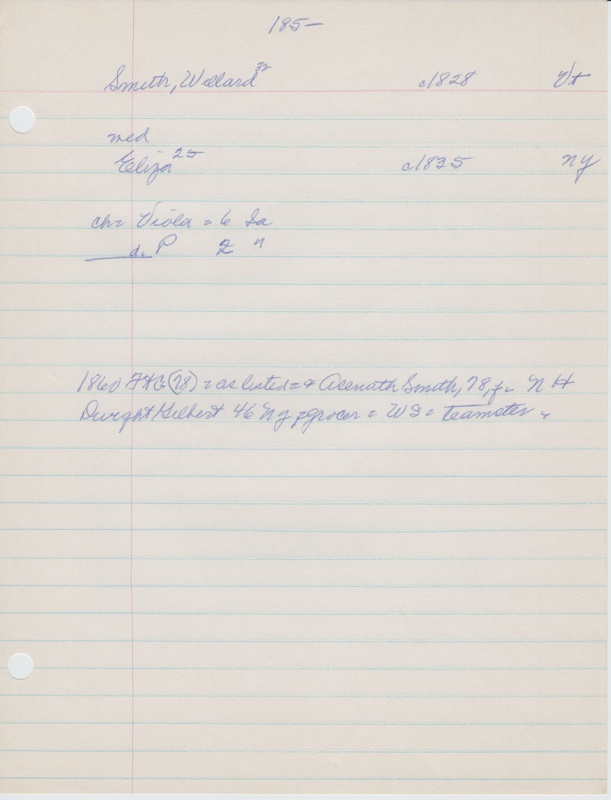 185-
Smith, Willard 32 c1828 Vt
med
Eliza 25 c1835 NY
ch= Viola = 6 Ia
d. P 2 "
1860 (78) = as listed = & Asenath Smith, 78, f = N H
Dwight Gilbert 46 NY grocer = WS = teamster